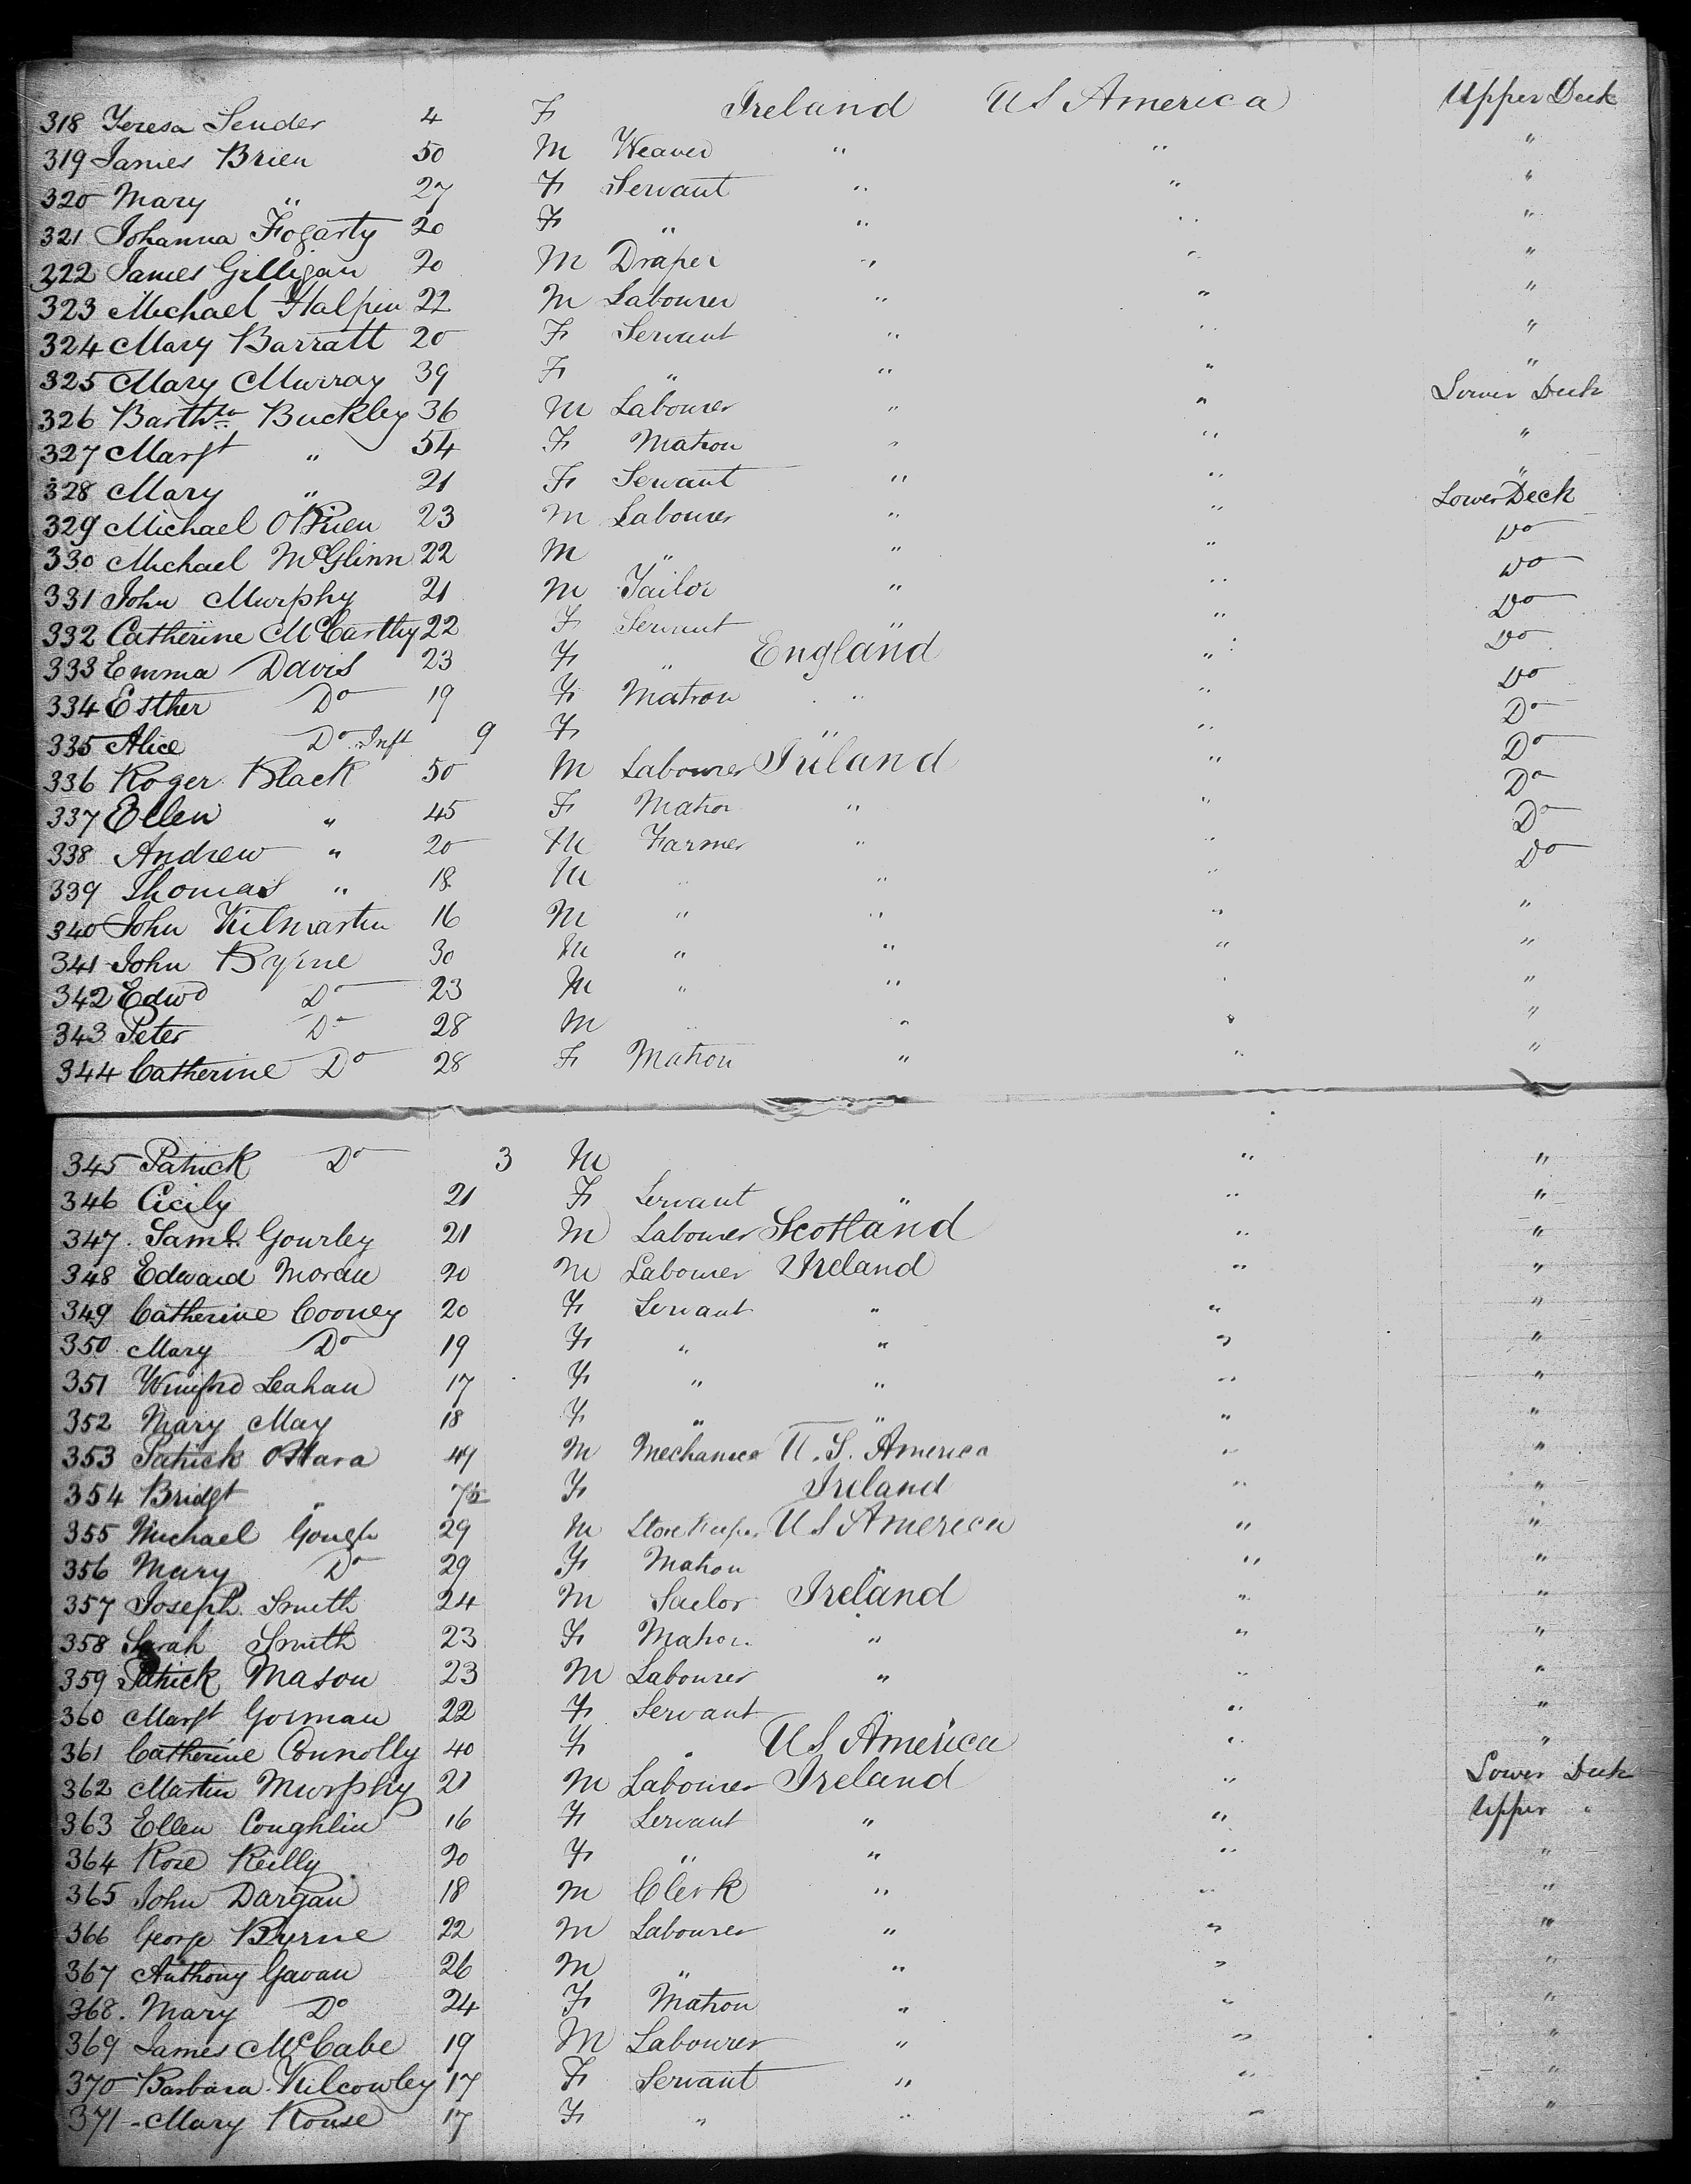 318 Teresa Sender 4 F Ireland US America Upper Deck
319 James Brien 50 M Weaver " " "
320 Mary " 27 F Servant " " "
321 Johanna Fogarty 20 F " " " "
322 James Gilligan 20 M Draper " " "
323 Michael Halpin 22 M Labourer " " "
324 Mary Barratt 20 F Servant " " "
325 Mary Murray 39 F " " " "
326 Barthw Buckley 36 M Labourer " " Lower Deck
327 Margt " 54 F Matron " " "
328 Mary " 21 F Servant " " "
329 Michael OBrien 23 M Labourer " " Lower Deck
330 Michael McGlinn 22 M " " " Do
331 John Murphy 21 M Tailor " " Do
332 Catherine McCarthy 22 F Servant " " Do
333 Emma Davis 23 F " England " Do
334 Esther Do 19 F Matron " " Do
335 Alice Do Inft 9 F " " Do
336 Roger Black 50 M Labourer Ireland " Do
337 Ellen " 45 F Matron " " Do
338 Andrew " 20 M Farmer " " Do
339 Thomas " 18 M " " " Do
340 John Kilmartin 16 M " " " "
341 John Byrne 30 M " " " "
342 Edwd Do 23 M " " " "
343 Peter Do 28 M " " " "
344 Catherine Do 28 F Matron " " "
345 Patrick Do 3 M " "
346 Cicily 21 F Servant " " "
347 Saml Gourley 21 M Labourer Scotland " "
348 Edward Moran 20 M Labourer Ireland " "
349 Catherine Cooney 20 F Servant " " "
350 Mary Do 19 F " " " "
351 Winifrd Leahan 17 F " " " "
352 Mary May 18 F " " " "
353 Patrick OHara 49 M Mechanica U.S. America " "
354 Bridgt " 75 F Ireland " "
355 Michael Gough 29 M Store Keeper US America " "
356 Mary Do 29 F Matron " " "
357 Joseph Smith 24 M Sailor Ireland " "
358 Sarah Smith 23 F Matron " " "
359 Patrick Mason 23 M Labourer " " "
360 Margt Gorman 22 F Servant " " "
361 Catherine Connolly 40 F " US America " "
362 Martin Murphy 21 M Labourer Ireland " Lower Deck
363 Ellen Coughlin 16 F Servant " " Upper "
364 Rose Reilly 20 F " " " "
365 John Dargan 18 M Clerk " " "
366 George Byrne 22 M Labourer " " "
367 Anthony Gavan 26 M " " " "
368. Mary Do 24 F Matron " " "
369 James McCabe 19 M Labourer " " "
370 Barbara Kilcowley 17 F Servant " " "
371 Mary Rouse 17 F " " " "